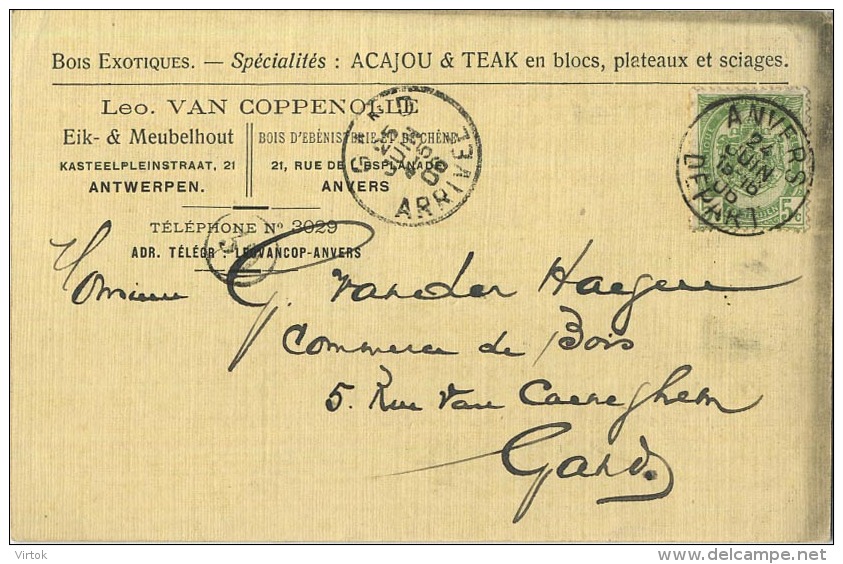 BOIS EXOTIQUES. — Spécialités : ACAJOU & TEAK en blocs, plateaux et sciages.
Leo. VAN COPPENOLLE
Eik- & Meubelhout
KASTEELPLEINSTRAAT, 21
ANTWERPEN.
BOIS D'EBÉNISTERIE ET DE CHÊNE
21, RUE DE L'ESPLANADE
ANVERS
TÉLÉPHONE No 3029
ADR. TÉLÉGR : LEOVANCOP-ANVERS
GAND
25
JUIN
06
ARRIVEE
ANVERS
24
JUIN
06
DEPART
5c
Monsieur G. Vander Haegen
Commerce de Bois
5. Rue Van Caeneghem
Gand.
Virtok
delcampe.net